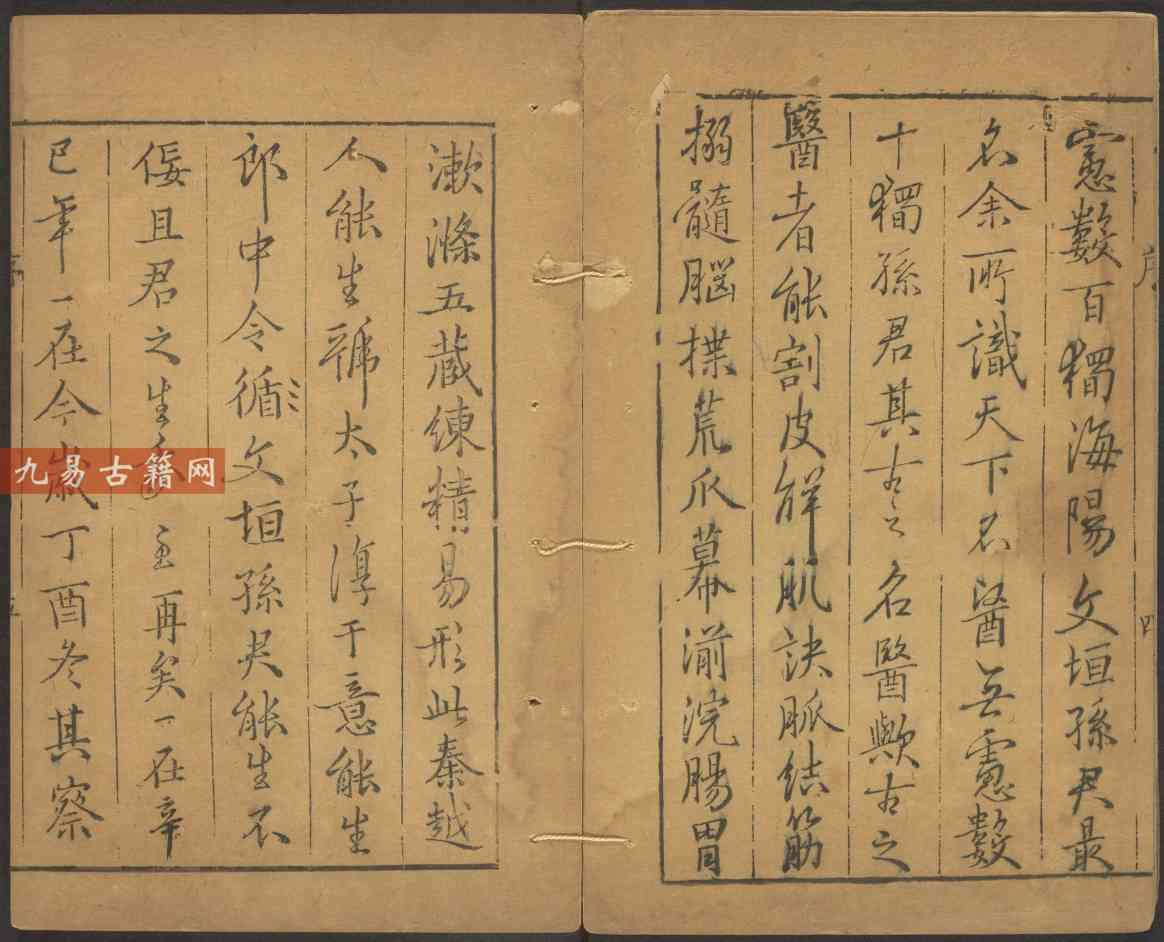 序
四
慮數百獨海陽文垣孫君最
名余所識天下名醫無慮數
十獨孫君其古之名醫歟古之
醫者能割皮解肌訣脈結筋
搦髓腦揲荒爪幕湔浣腸胃
漱滌五藏練精易形此秦越
人能生虢太子淳于意能生
郎中令循文垣孫君能生不
佞且君之生至再矣一在辛
巳年一在今歲丁酉冬其察
九易古籍网